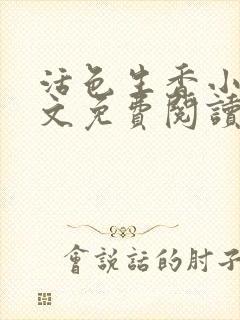 活色生香小
文免費閱讀
會說話的肘子